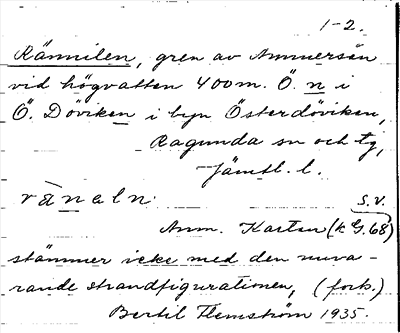 1-2.
Rännilen, gren av Ammerån
vid högvatten 400m. Ö. n i
Ö. Döviken i byn Österdöviken,
Ragunda sn och tg,
Jämtl. l.
rä̀naln. s.v.
Anm. Kartan (k G.68)
stämmer icke med den nuva-
rande strandfigurationen, (fork.)
Bertil Flemström 1935.